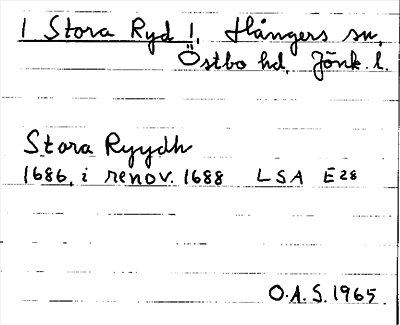 ! Stora Ryd !, Hångers sn,
Östbo hd, Jönk. l.
Stora Ryydh
1686, i renov. 1688 LSA E28
O.A.S. 1965.